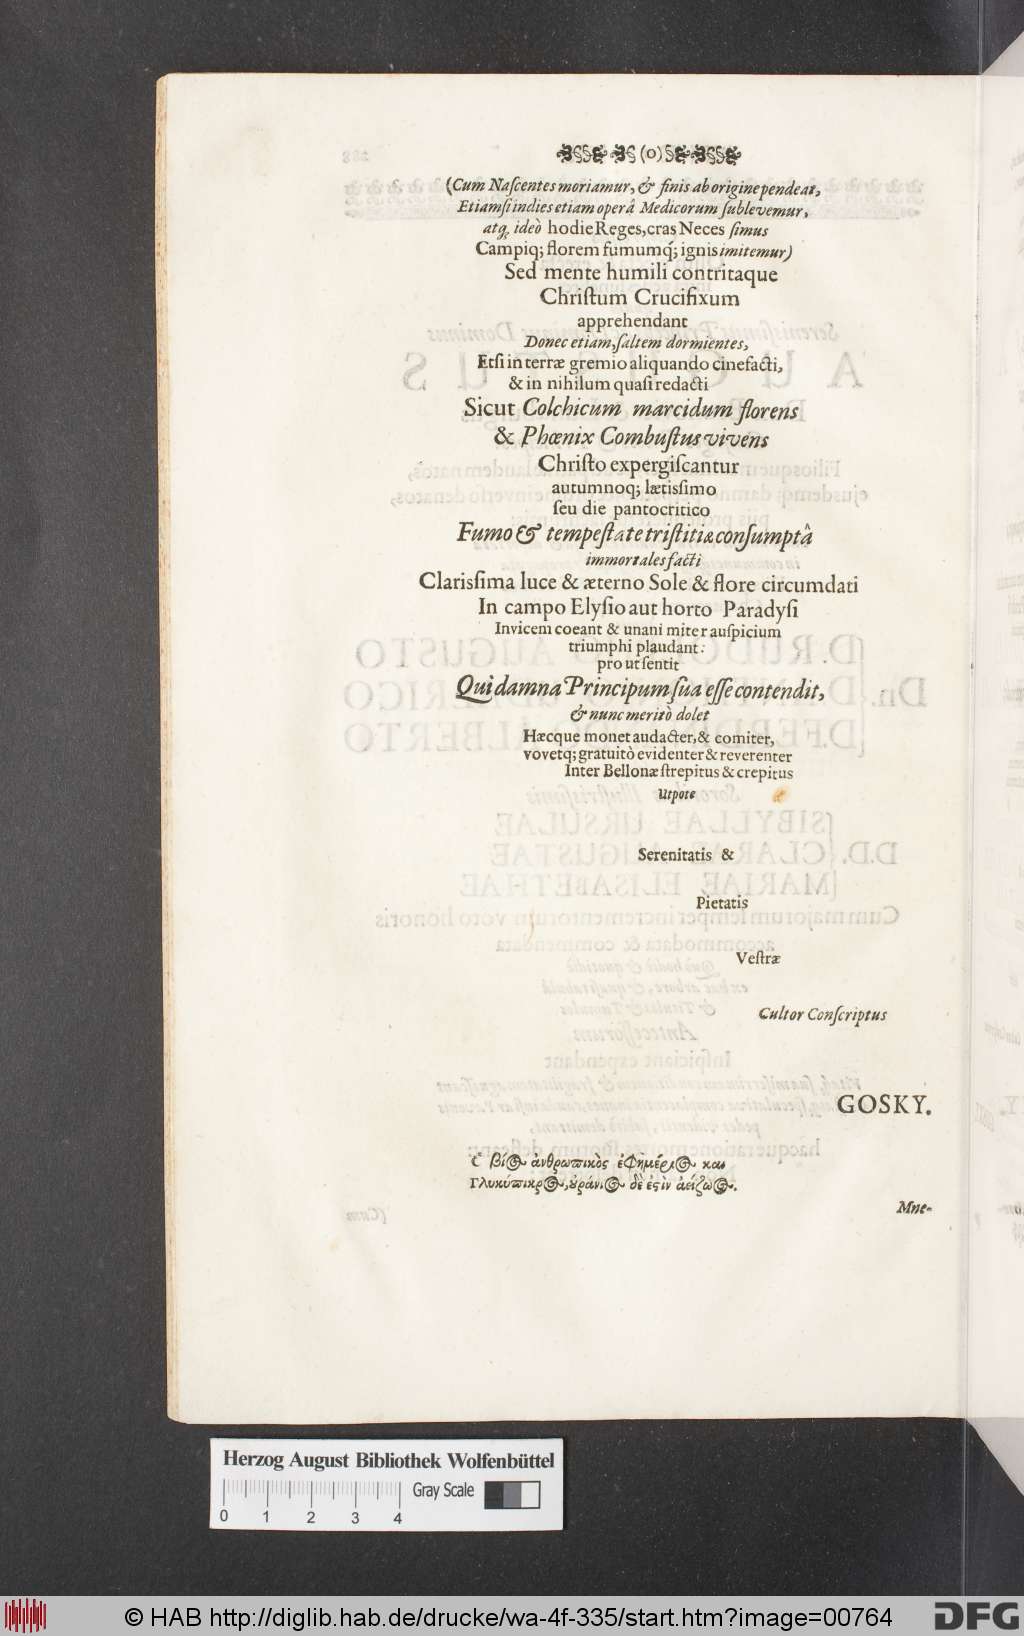 (o)
(Cum Naſcentes moriamur, & finis ab origine pendeat,
Etiamſi indies etiam operâ Medicorum ſublevemur,
atq; ideò hodie Reges, cras Neces ſimus
Campiq; florem fumumq́; ignis imitemur)
Sed mente humili contritaque
Chriſtum Crucifixum
apprehendant
Donec etiam, ſaltem dormientes,
Etſi in terræ gremio aliquando cinefacti,
& in nihilum quaſi redacti
Sicut Colchicum marcidum florens
& Phœnix Combuſtus vivens
Chriſto expergiſcantur
autumnoq; lætisſimo
ſeu die pantocritico
Fumo & tempeſtate triſtitiæ conſumptâ
immortales facti
Clarisſima luce & æterno Sole & flore circumdati
In campo Elyſio aut horto Paradyſi
Invicem coeant & unanimiter auſpicium
triumphi plaudant:
pro ut ſentit
Qui damna Principum ſua eſſe contendit,
& nunc meritò dolet
Hæcque monet audacter, & comiter,
vovetq; gratuitò evidenter & reverenter
Inter Bellonæ ſtrepitus & crepitus
Utpote
Serenitatis &
Pietatis
Veſtræ
Cultor Conſcriptus
GOSKY.
Ὁ βίος ἀνθρωπικὸς ἐφημέριος καὶ
Γλυκύπικρος, οὐράνιος δὲ ἐςὶν ἀείζωος.
Mne-
Herzog August Bibliothek Wolfenbüttel
Gray Scale
0 1 2 3 4
© HAB http://diglib.hab.de/drucke/wa-4f-335/start.htm?image=00764
DFG